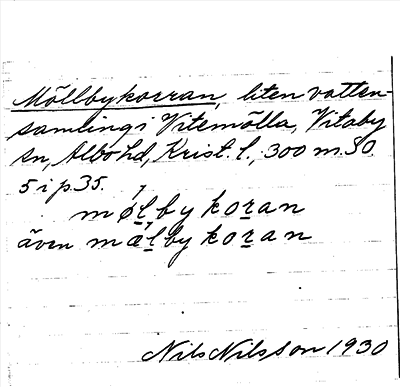 Möllbykorran, liten vatten-
samling i Vitemölla, Vitaby
sn, Albo hd, Krist. l., 300 m. SO.
5 i p.35.
møl̲by kor̲an
även mæl̲by kor̲an
Nils Nilsson 1930